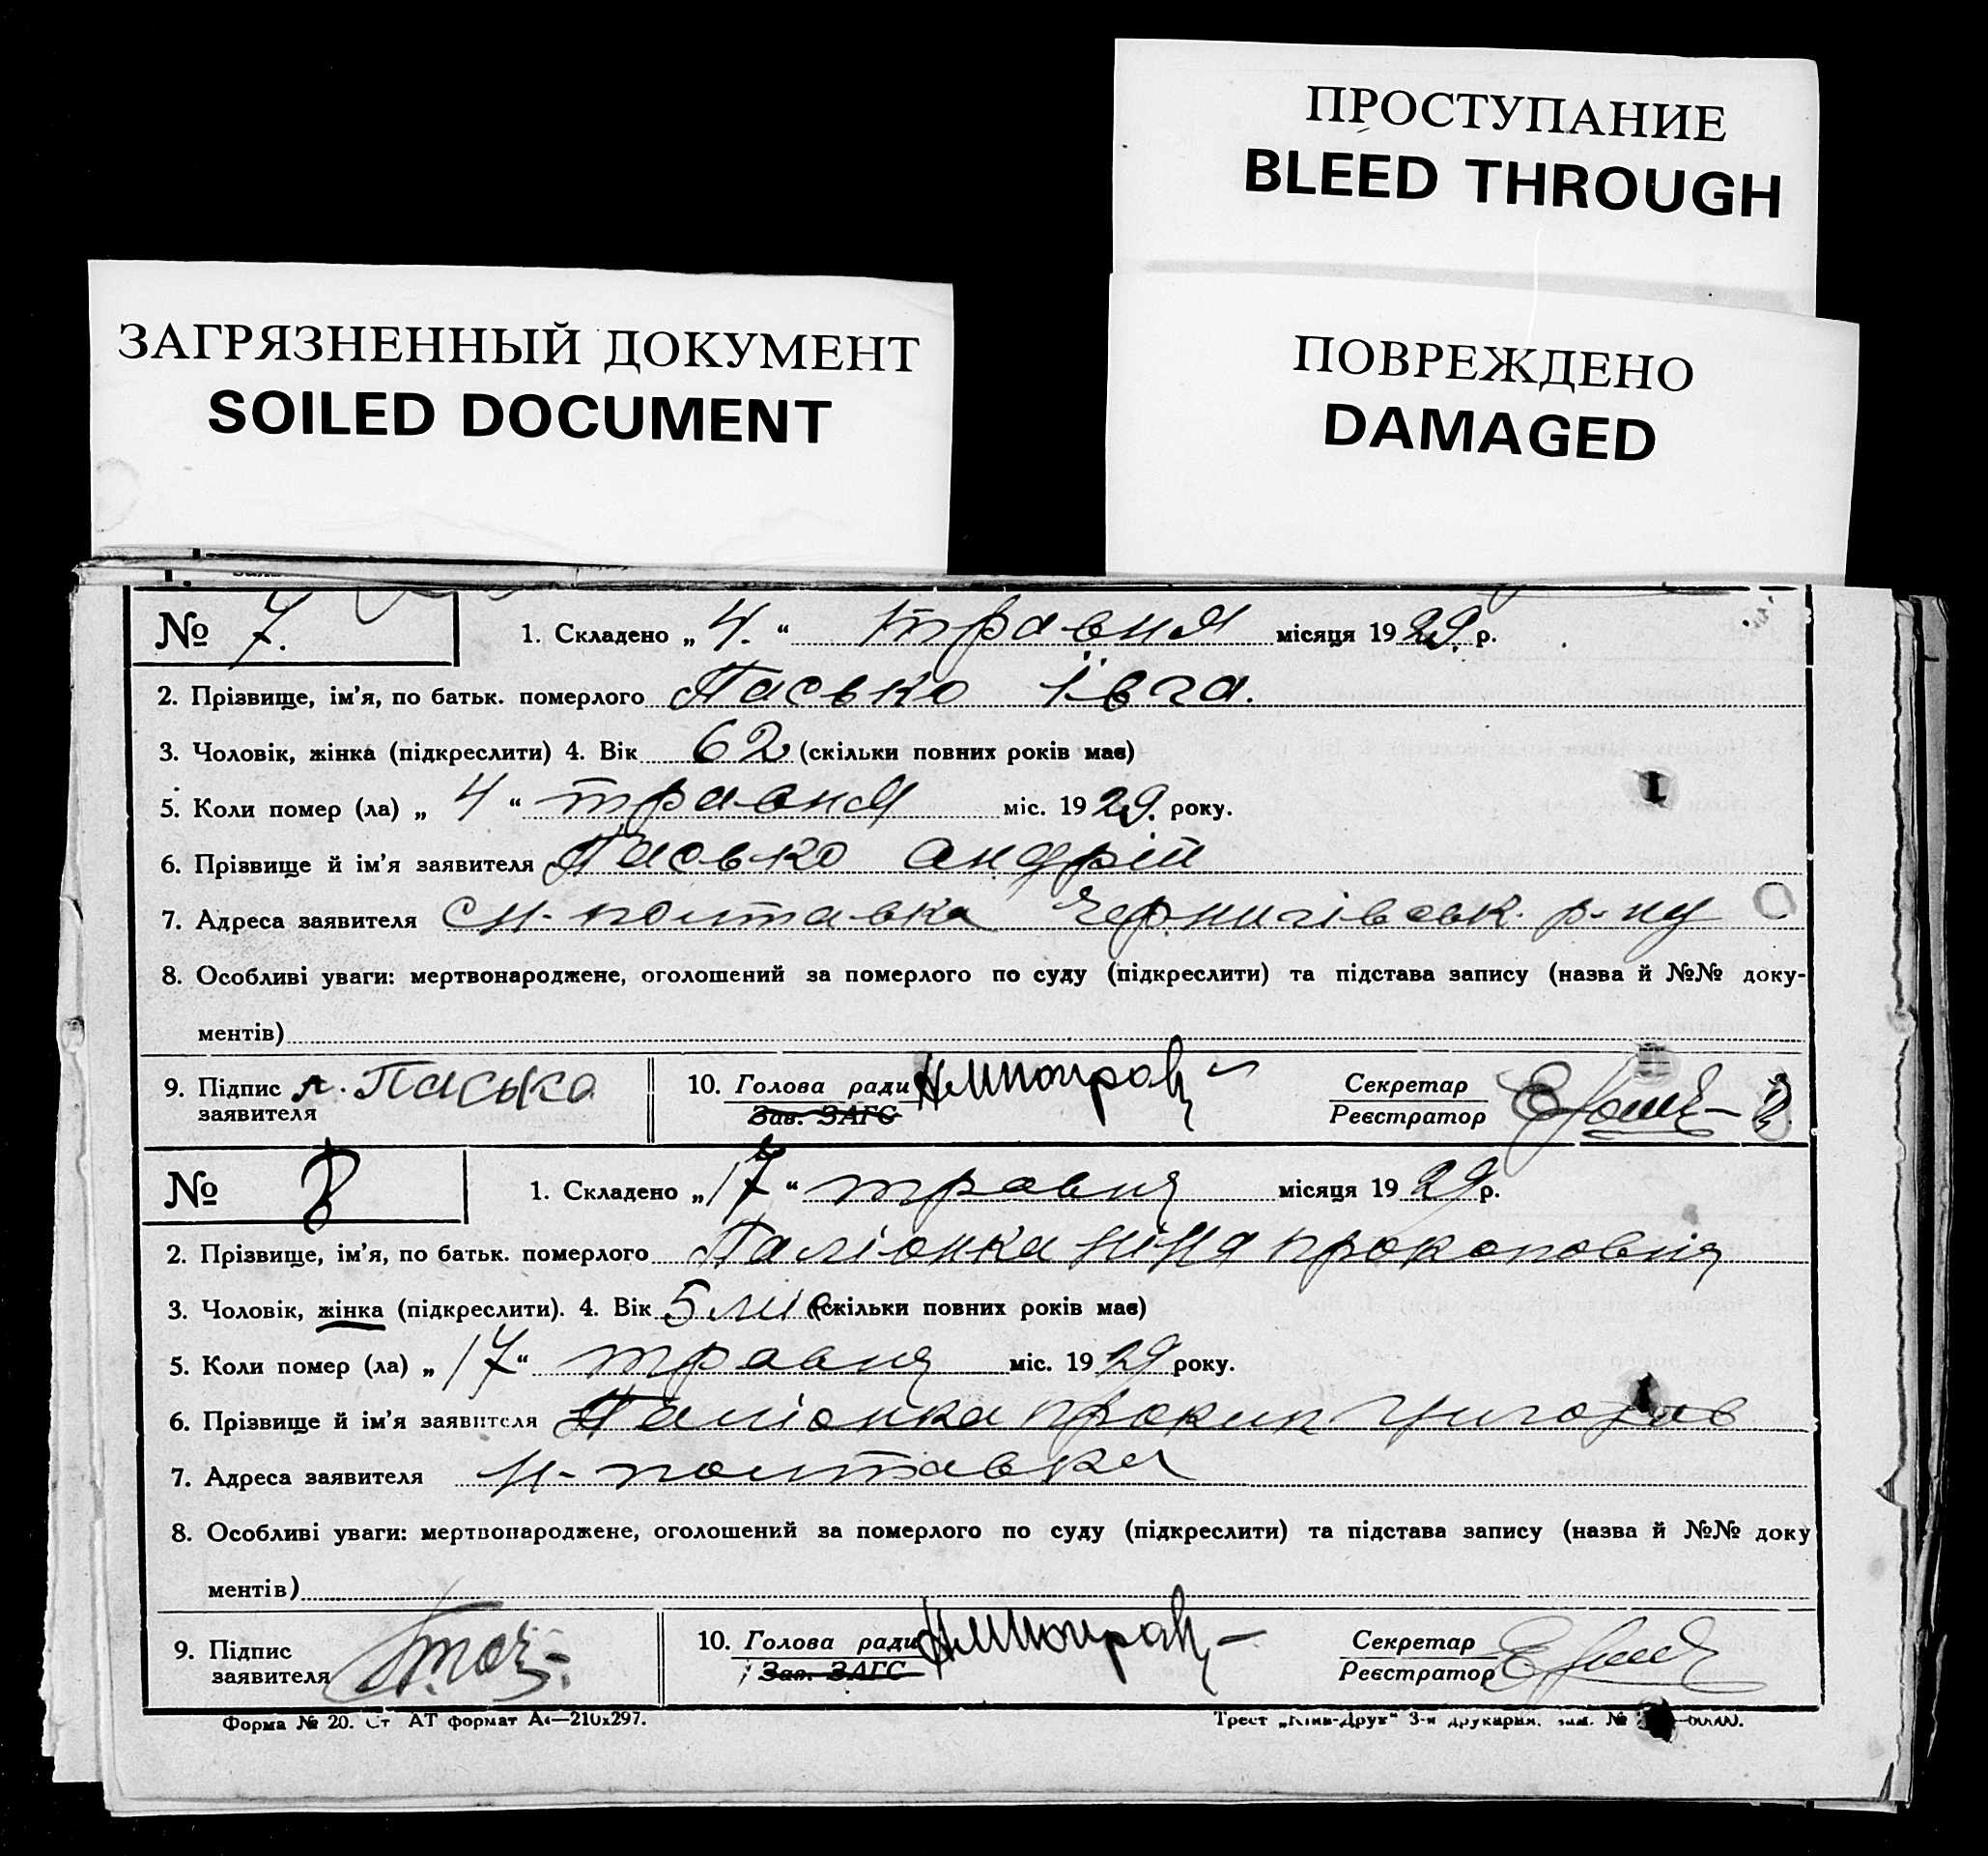 ПРОСТУПАНИЕ
BLEED THROUGH
ЗАГРЯЗНЕННЫЙ ДОКУМЕНТ
SOILED DOCUMENT
ПОВРЕЖДЕНО
DAMAGED
№ 7. 1. Складено „ 4. “ травня місяця 1929. р.
2. Прізвище, ім'я, по батьк. померлого Пасько Івга.
3. Чоловік, жінка (підкреслити) 4. Вік 62 (скільки повних років має)
5. Коли помер (ла) „ 4 “ травня міс. 1929. року.
6. Прізвище й ім'я заявителя Пасько Андрій
7. Адреса заявителя р-ну
8. Особливі уваги: мертвонароджене, оголошений за померлого по суду (підкреслити) та підстава запису (назва й №№ доку-
ментів)
9. Підпис заявителя 10. Голова ради Зав. ЗАГС Секретар Реєстратор
№ 8 1. Складено „17“ травня місяця 1929 р.
2. Прізвище, ім'я, по батьк. померлого Паліонка Ніна Прокоповня
3. Чоловік, жінка (підкреслити). 4. Вік 5 міс (скільки повних років має)
5. Коли помер (ла) „17“ травня міс. 1929 року.
6. Прізвище й ім'я заявителя Паліонка Прокип
7. Адреса заявителя
8. Особливі уваги: мертвонароджене, оголошений за померлого по суду (підкреслити) та підстава запису (назва й №№ доку
ментів)
9. Підпис заявителя 10. Голова ради Зав. ЗАГС Секретар Реєстратор
Форма № 20. Ст АТ формат А4—210х297. Трест „Київ-Друк“ 3-я друкарня, зам. №